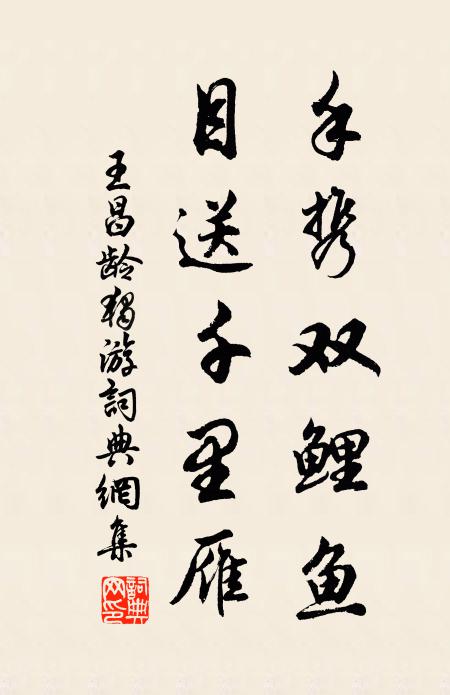 手携双鲤鱼
目送千里雁
王昌龄独游詞典網集
詞典网印